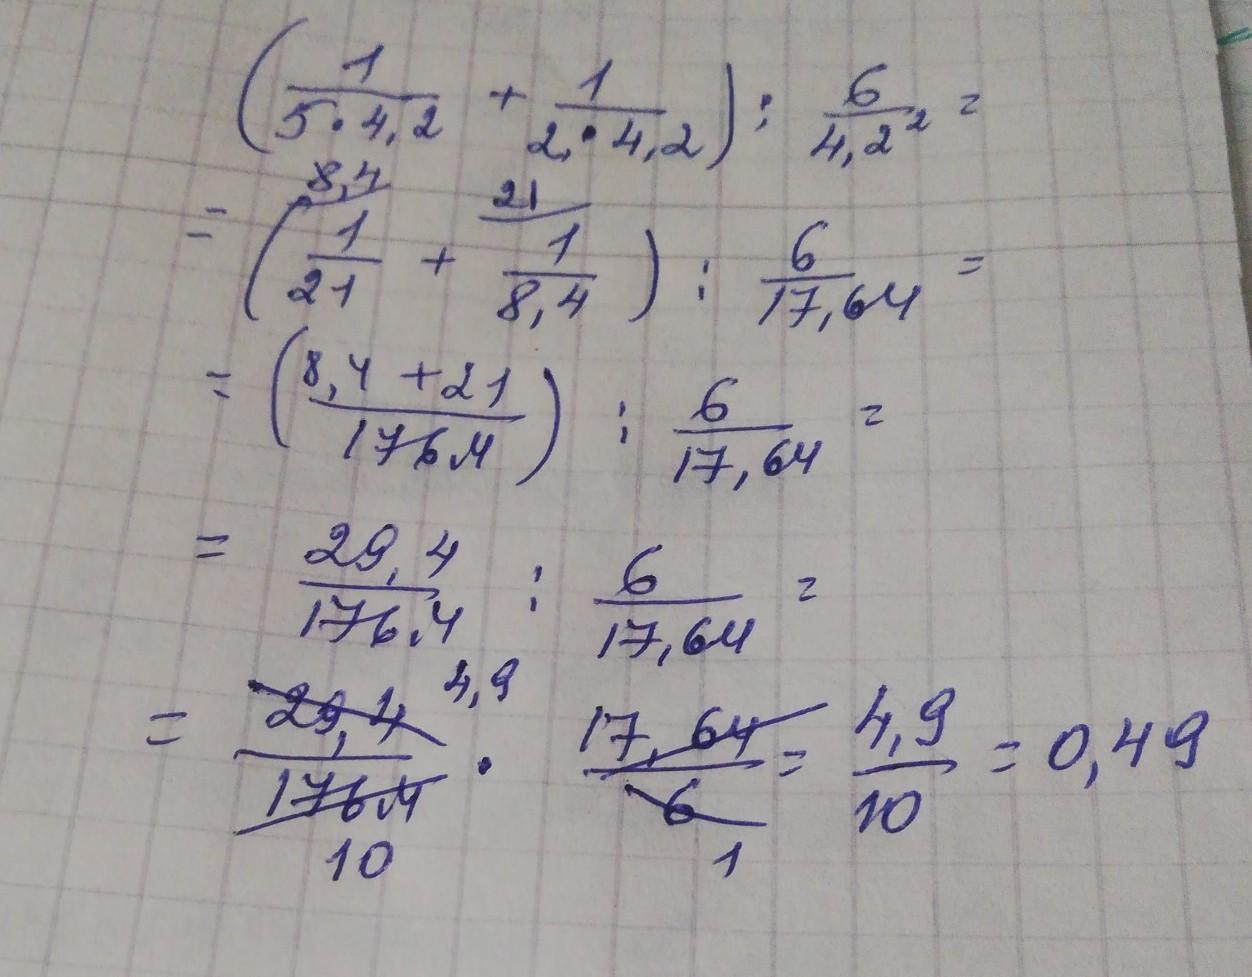 (1/(5·4,2) + 1/(2·4,2)) : 6/4,2² =
= (1/21 (8,4) + 1/8,4 (21)) : 6/17,64 =
= ((8,4 + 21)/176.4) : 6/17,64 =
= 29,4/176.4 : 6/17,64 =
= 29,4/176.4 · 17,64/6 = 4,9/10 = 0,49
4,9
10
1